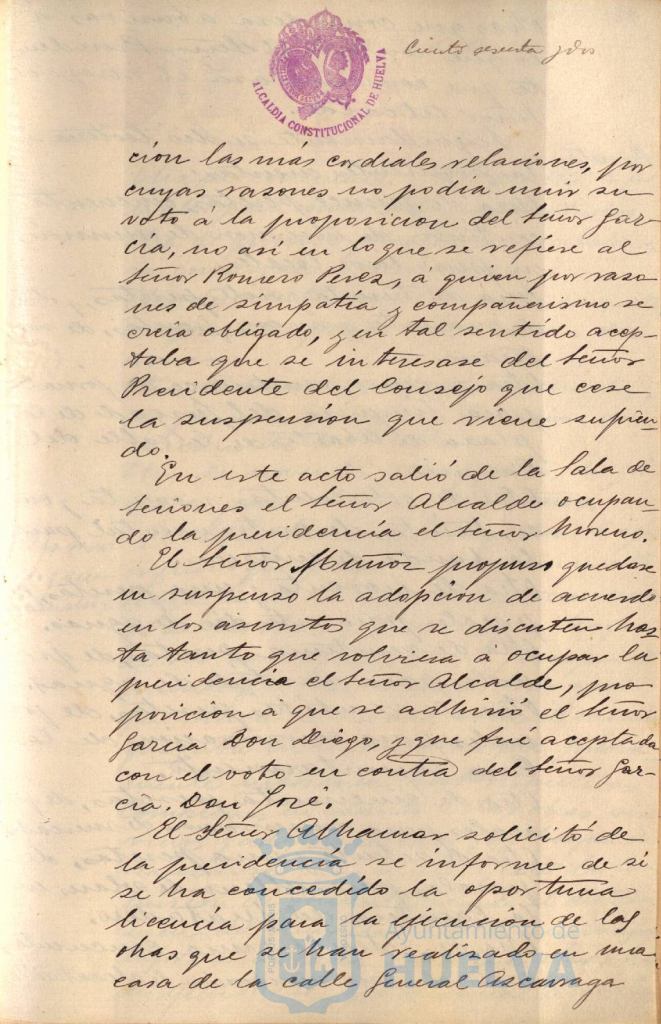 Ciento sesenta y dos
ALCALDIA CONSTITUCIONAL DE HUELVA
ción las más cordiales relaciones, por
cuyas razones no podia unir su
voto á la proposicion del Señor Gar-
cía, no asi en lo que se refiere al
Señor Romero Perez, á quien por razo-
nes de simpatía y compañerismo se
creia obligado, y en tal sentido acep-
taba que se interesase del Señor
Presidente del Consejo que cese
la suspensión que viene sufrien-
do.
En este acto salió de la Sala de
sesiones el Señor Alcalde ocupan-
do la presidencia el Señor Moreno.
El Señor Muñoz propuso quedase
en suspenso la adopción de acuerdo
en los asuntos que se discuten has-
ta tanto que volviera á ocupar la
presidencia el Señor Alcalde, pro
posicion á que se adhirió el Señor
García Don Diego, y que fué aceptada
con el voto en contra del Señor Gar-
cía. Don José.
El Señor Alhamar solicitó de
la presidencia se informe de si
se ha concedido la oportuna
licencia para la ejecucion de las
obras que se han realizado en una
casa de la calle General Azcarraga
Ayuntamiento de
HUELVA